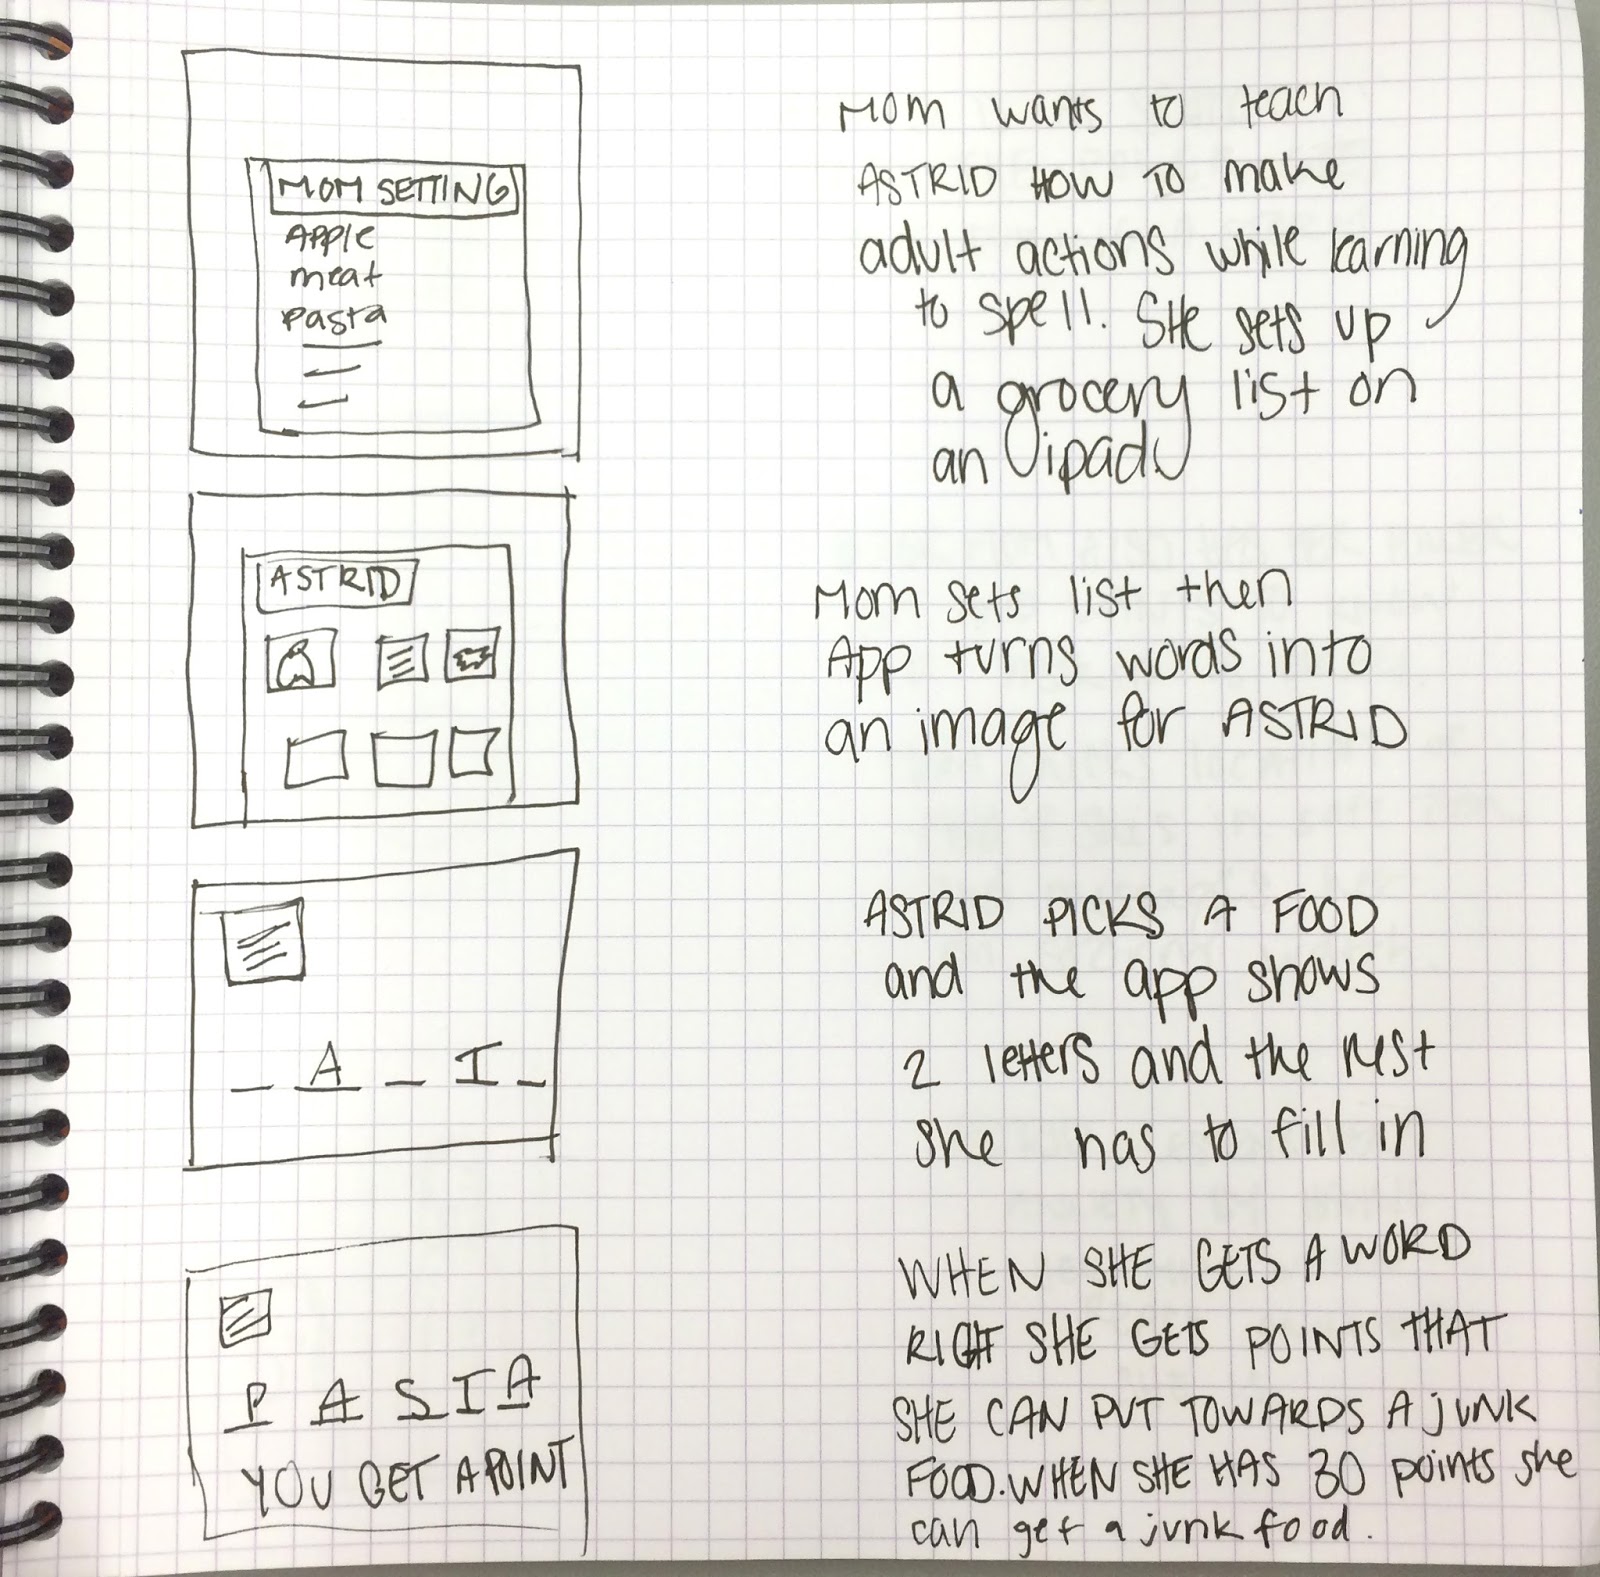 MOM SETTING
APPle
meat
Pasta
Mom wants to teach
ASTRID HOW TO make
adult actions while learning
to spell. SHe sets up
a grocery list on
an ipad
ASTRID
Mom sets list then
App turns words into
an image for ASTRID
_ A _ T _
ASTRID PICKS A FOOD
and the app shows
2 letters and the rest
she has to fill in
P A S T A
YOU GET A POINT
WHEN SHE GETS A WORD
RIGHT SHE GETS POINTS THAT
SHE CAN PUT TOWARDS A JUNK
FOOD. WHEN SHE HAS 30 points she
can get a junk food.